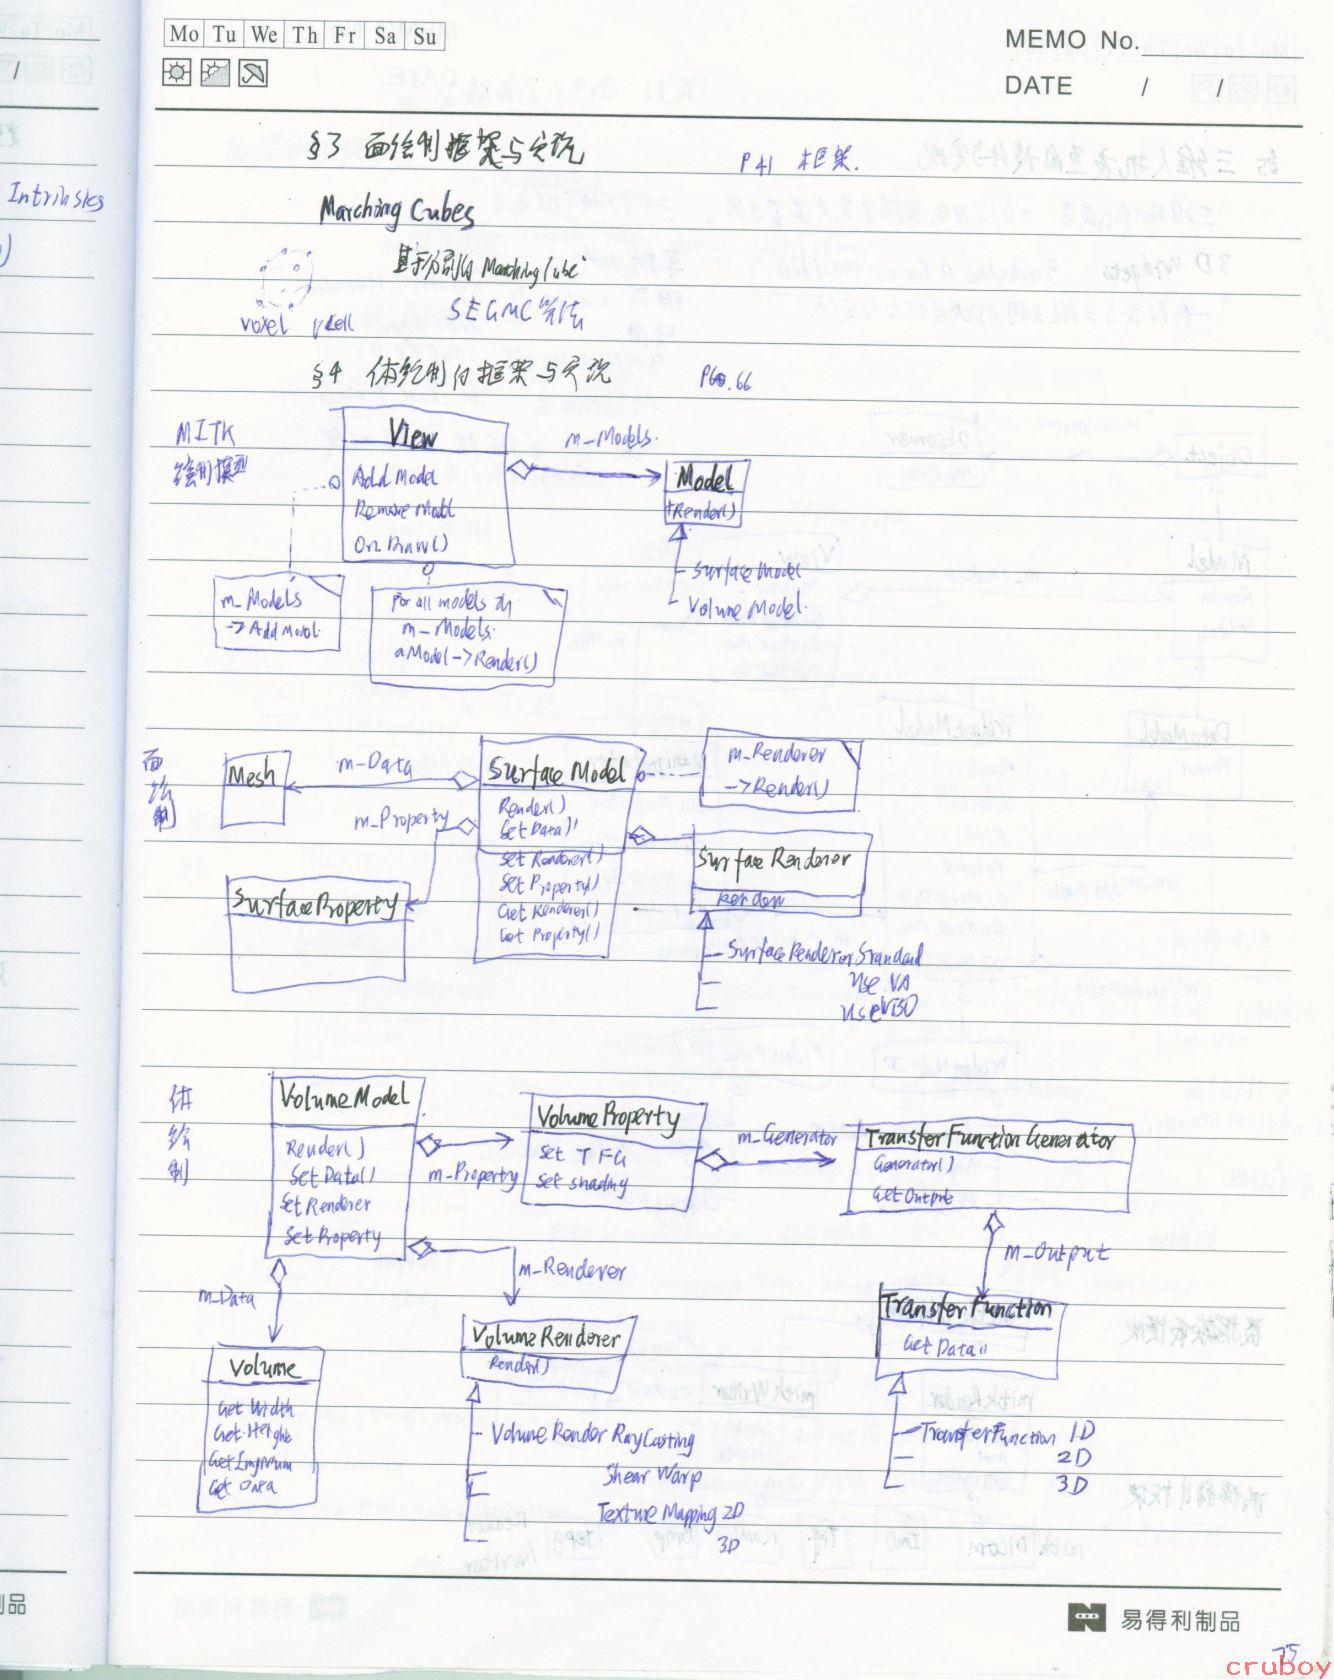 Mo Tu We Th Fr Sa Su
MEMO No.
DATE / /
Intrinsics
§3 面绘制框架与实现
P41 框架.
Marching Cubes
基于分割的 Marching Cube
SEGMC算法
voxel
cell
§4 体绘制的框架与实现
P60.66
MITK
绘制模型
View
Add Model
Remove Model
OnDraw()
m_Models.
Model
+Render()
Surface Model
Volume Model.
m_Models
->Add Model.
For all models in
m_Models.
aModel->Render()
面绘制
Mesh
m_Data
m_Property
Surface Model
Render()
Set Data()
Set Renderer()
Set Property()
Get Renderer()
Get Property()
m_Renderer
->Render()
Surface Renderer
Render
Surface Property
Surface Renderer Standard
Use VA
Use VBO
体绘制
VolumeModel
Render()
Set Data()
Set Renderer
Set Property
m_Property
Volume Property
Set TFG
Set shading
m_Generator
TransferFunctionGenerator
Generator()
Get Output
m_Output
m_Renderer
m_Data
Volume
Get Width
Get Height
Get ImgNum
Get Data
Volume Renderer
Render()
Volume Render RayCasting
Shear Warp
Texture Mapping 2D
3D
TransferFunction
Get Data()
TransferFunction 1D
2D
3D
制品
易得利制品
75
cruboy